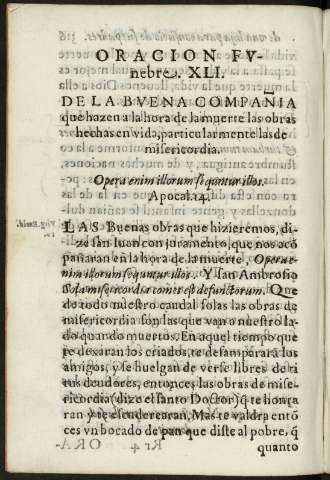 ORACION FV-
nebre. XLI.
DE LA BVENA COMPAÑIA
que hazen a la hora de la muerte las obras
hechas en vida, particularmente las de
misericordia.
Opera enim illorum sequntur illos.
Apocal. 14.
LAS Buenas obras que hizieremos, di-
ze san Iuan con juramento, que nos acõ
pañaran en la hora de la muerte, Opera e-
nim illorum sequntur illos. Y san Ambrosio
Sola misericordia comes est defunctorum. Que
de todo nuestro caudal solas las obras de
misericordia son las que van a nuestro la-
do quando muertos. En aquel tiempo que
te dexaran los criados, te desampararà los
amigos, y se huelgan de verse libres de ti
tus deudores, entonces las obras de mise-
ricordia (dize el santo Doctor) q̃ te honra
ran y te defenderearan, Mas te valdra entõ
ces vn bocado de pan que diste al pobre, q̃
quanto